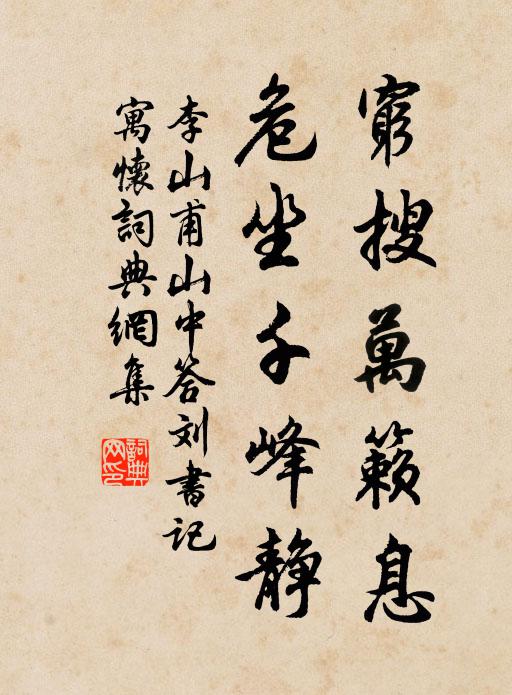 窮搜萬籟息
危坐千峰靜
李山甫山中答刘書記
寓懷詞典網集
詞典网印